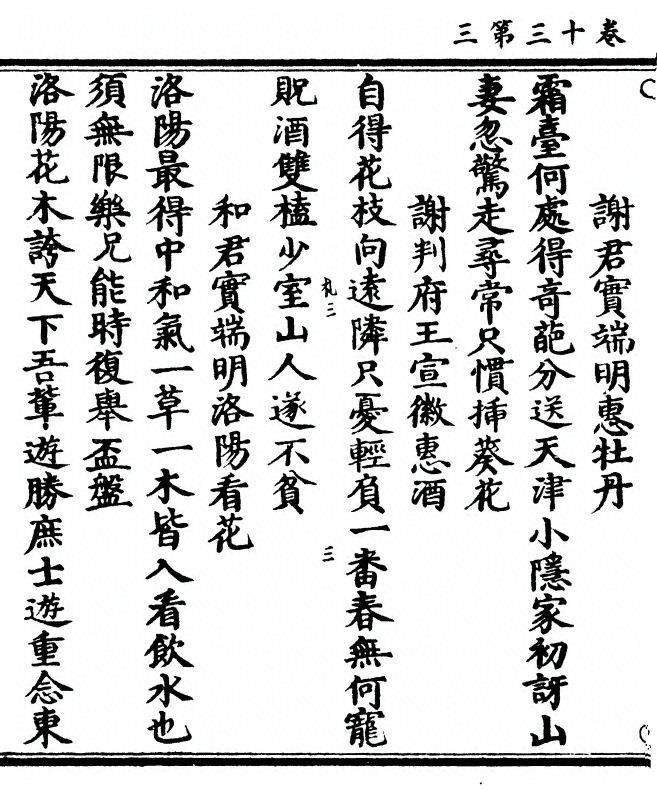 卷十三第三
謝君實端明惠牡丹
霜臺何處得奇葩分送天津小隱家初訝山
妻忽驚走尋常只慣揷葵花
謝判府王宣徽惠酒
自得花枝向遠隣只憂輕負一番春無何寵
貺酒雙榼少室山人遂不貧
和君實端明洛陽看花
洛陽最得中和氣一草一木皆入看飲水也
須無限樂兄能時復舉盃盤
洛陽花木誇天下吾輩遊勝庶士遊重念東